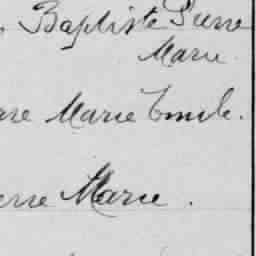 Baptiste Pierre
Marie
Marie Emile.
Marie .